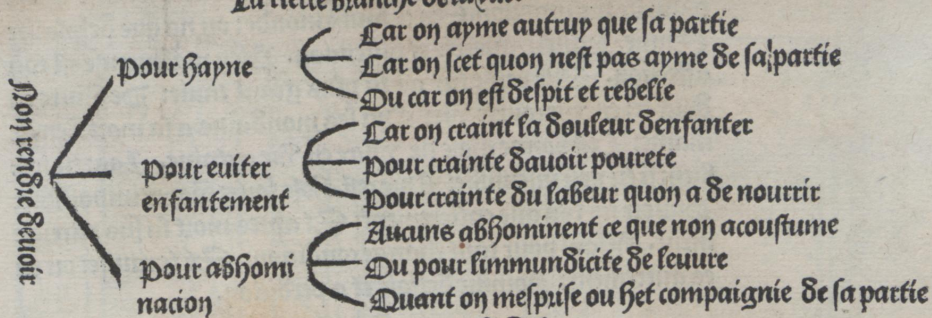 La tierce branche
Non rendre devoir
Pour hayne
Car on ayme autruy que sa partie
Car on scet quon nest pas ayme de sa partie
Ou car on est despit et rebelle
Pour euiter
enfantement
Car on craint la douleur denfanter
Pour crainte dauoir pourete
Pour crainte du labeur quon a de nourrir
Pour abhomi
nacion
Aucuns abhominent ce que non acoustume
Ou pour limmundicite de leuure
Quant on mesprise ou het compaignie de sa partie